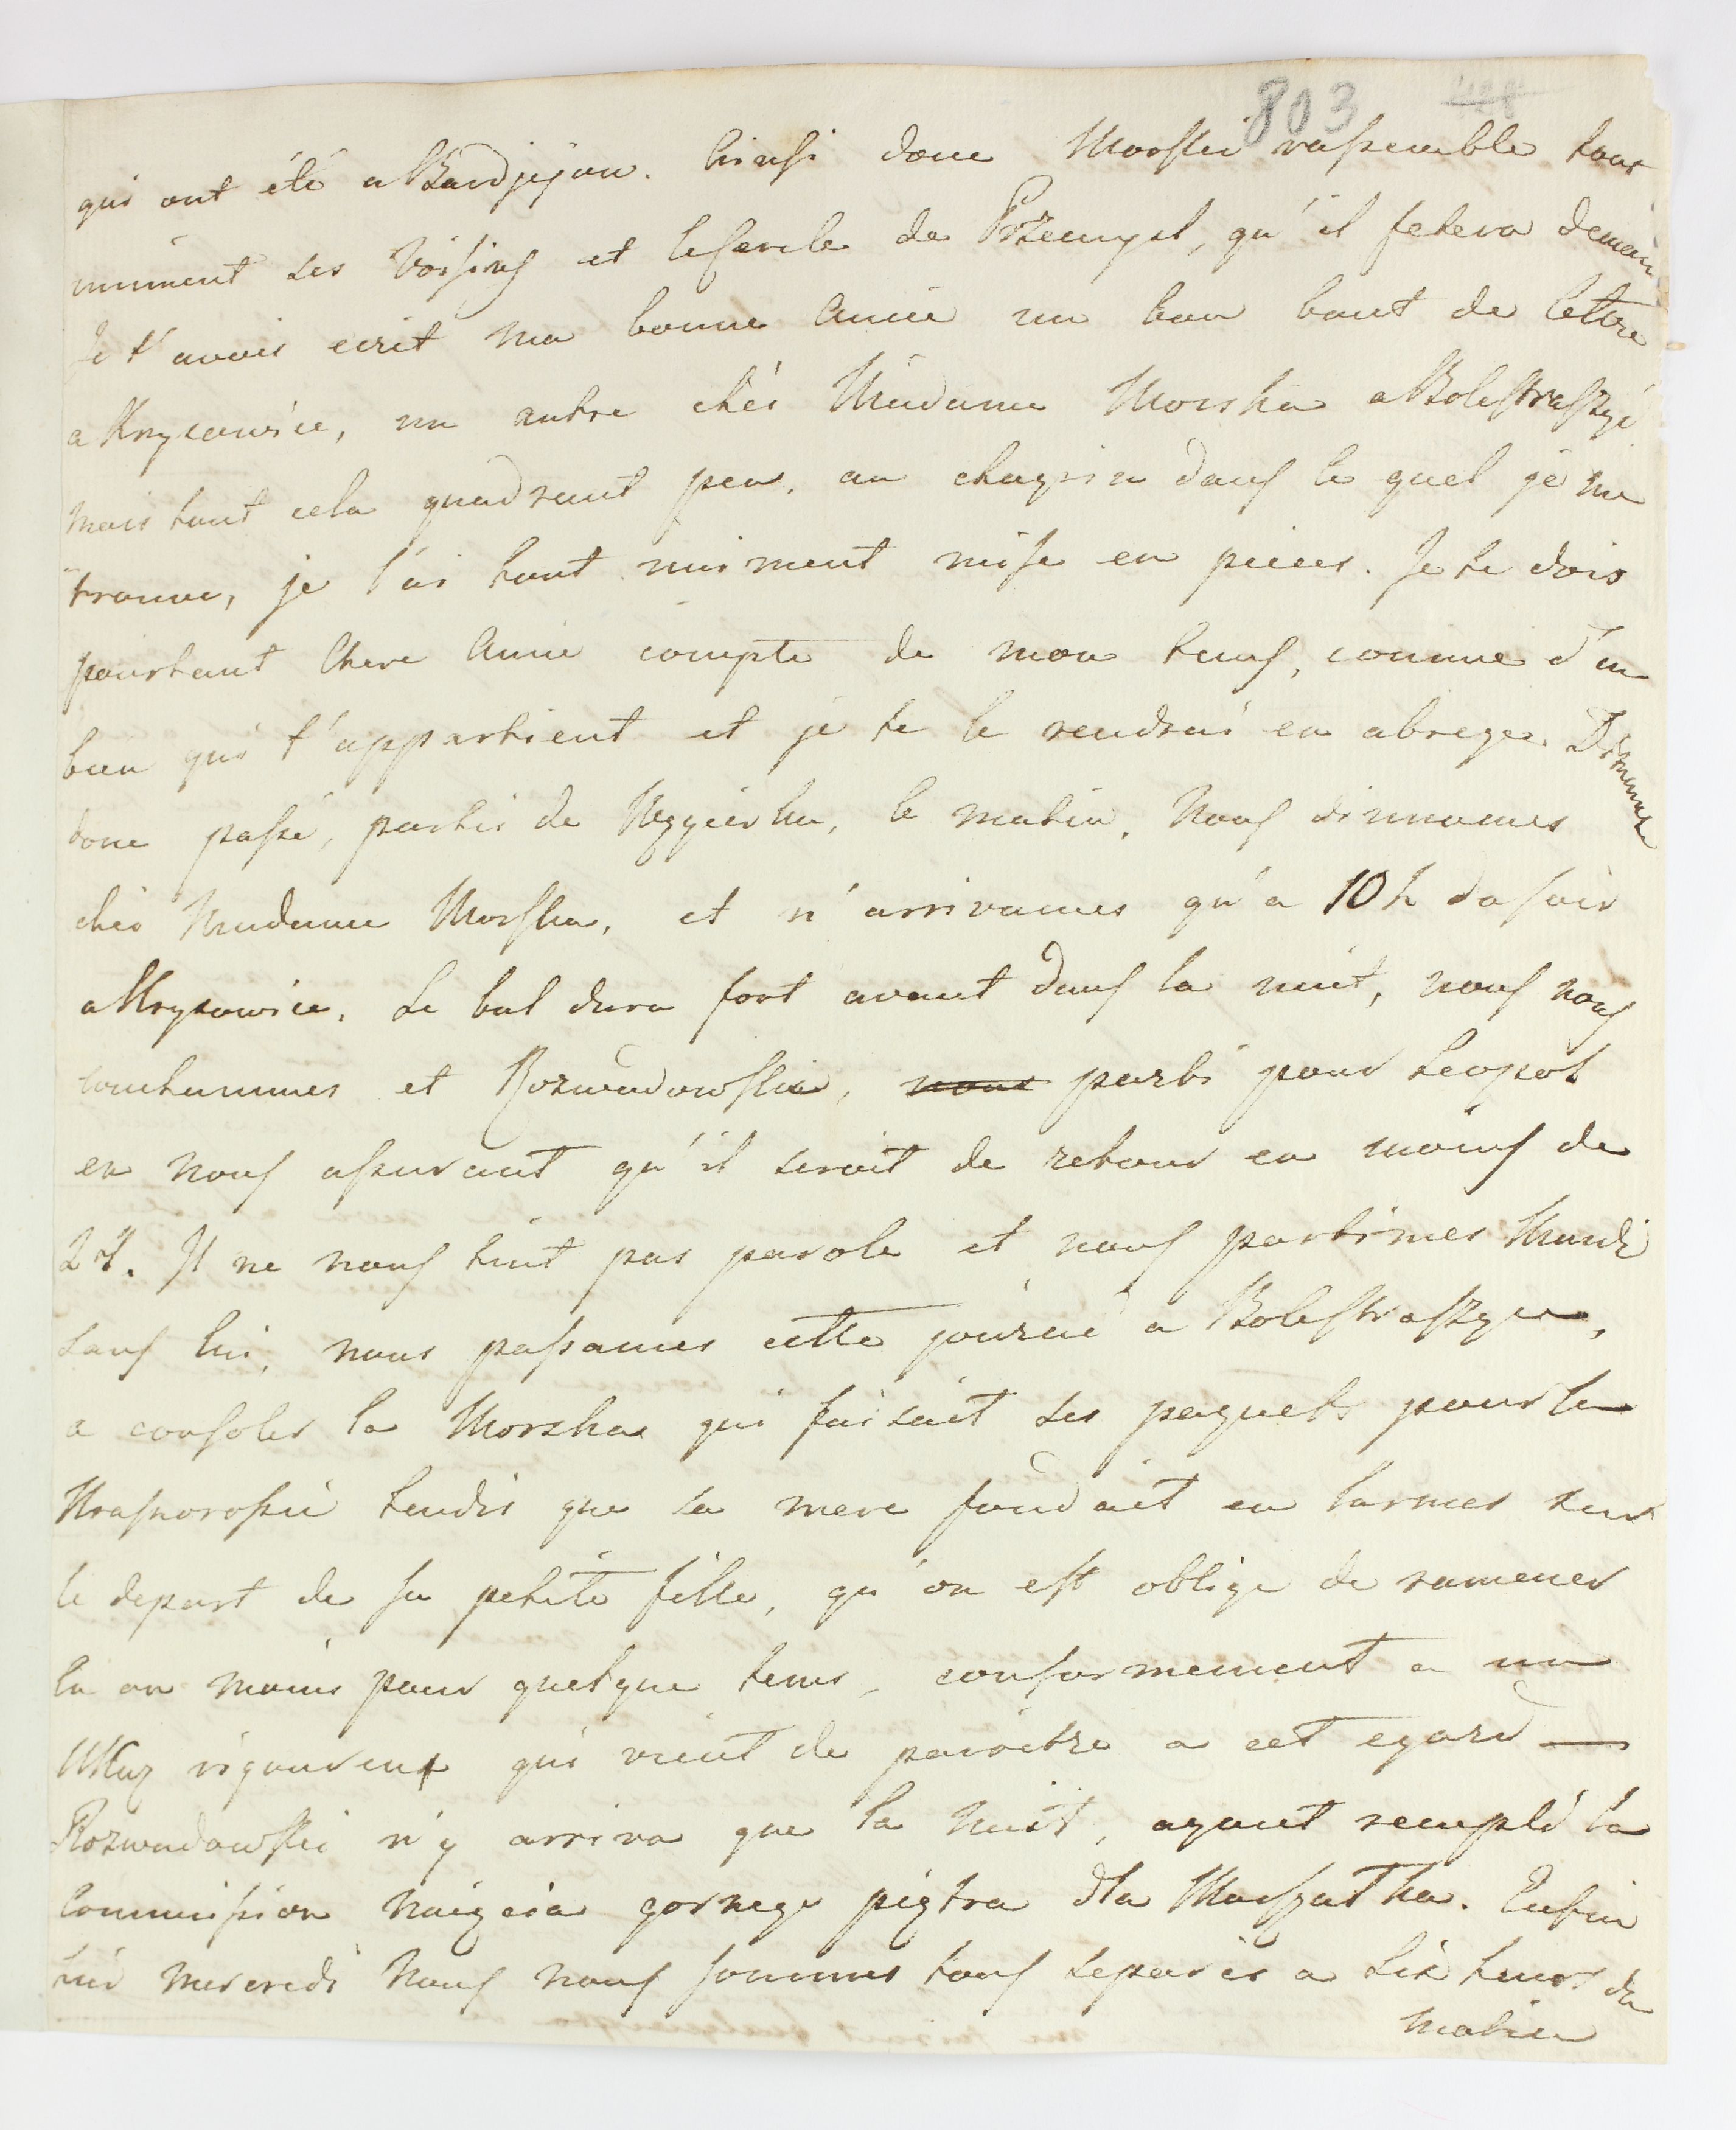 803
qui ont été a Bardjejow. Ainsi donc Morski rassemble tout
uniment ses voisins et le cercle de Przemysl, qu'il fetera demain
Je t'avois ecrit ma bonne Amie un bon bout de lettre
a Krysowice, un autre chés Madame Morska a Bolestraszyć
mais tout cela quadrant peu, au chagrin dans le quel je me
trouve, je l'ai tout uniment mise en pieces. Je te dois
pourtant Chere Amie compte de mon tems, comme d'un
bien qui t'appartient et je te le rendrai en abregee Dimanche
donc passé, partis de Węgierka, le matin, Nous dinnames
chés Madame Morska, et n'arrivames qu'a 10 h du soir
a Krysowice. Le bal dura fort avant dans la nuit, nous nous
couchammes et Rozwadowski, nous parti pour Leopol
en nous assurant qu'il seroit de retour en moins de
24. Il ne nous tint pas parole et nous partimes Mardi
sans lui, nous passames cette journé a Bolestraszyce,
a consoler la Morska qui faisait ses paquets pour la
tandis que sa mere fondait en larmes sur
le depart de sa petite fille, qu'on est oblige de ramener
la au moins pour quelque tems, conformement a un
Ukaz rigoureux qui vient de paroitre a cet egard —
Rozwadowski n'y arriva que la Nuit, ayant rempli la
Commission Najęcia gornego piętra dla Marszałka. Enfin
hier Mercredi Nous nous sommes tous separés a six heurs du
matin